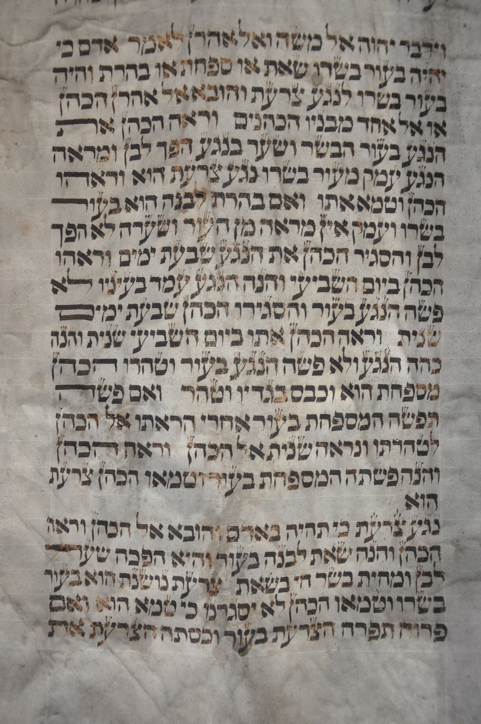 וידבר יהוה אל משה ואל אהרן לאמר אדם כי
יהיה בעור בשרו שאת או ספחת או בהרת והיה
בעור בשרו לנגע צרעת והובא אל אהרן הכהן
או אל אחד מבניו הכהנים וראה הכהן את
הנגע בעור הבשר ושער בנגע הפך לבן ומראה
הנגע עמק מעור בשרו נגע צרעת הוא וראהו
הכהן וטמא אתו ואם בהרת לבנה הוא בעור
בשרו ועמק אין מראה מן העור ושערה לא הפך
לבן והסגיר הכהן את הנגע שבעת ימים וראהו
הכהן ביום השביעי והנה הנגע עמד בעיניו לא
פשה הנגע בעור והסגירו הכהן שבעת ימים
שנית וראה הכהן אתו ביום השביעי שנית והנה
כהה הנגע ולא פשה הנגע בעור וטהרו הכהן
מספחת הוא וכבס בגדיו וטהר ואם פשה
תפשה המספחת בעור אחרי הראתו אל הכהן
לטהרתו ונראה שנית אל הכהן וראה הכהן
והנה פשתה המספחת בעור וטמאו הכהן צרעת
הוא
נגע צרעת כי תהיה באדם והובא אל הכהן וראה
הכהן והנה שאת לבנה בעור והיא הפכה שער
לבן ומחית בשר חי בשאת צרעת נושנת הוא בעור
בשרו וטמאו הכהן לא יסגרנו כי טמא הוא ואם
פרוח תפרח הצרעת בעור וכסתה הצרעת את